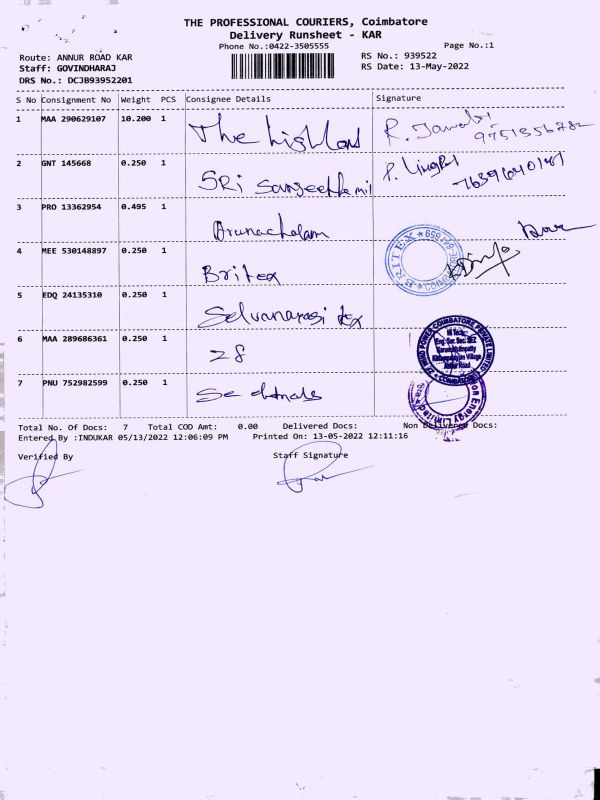 THE PROFESSIONAL COURIERS, Coimbatore
Delivery Runsheet - KAR
Phone No.:0422-3505555 Page No.:1
Route: ANNUR ROAD KAR RS No.: 939522
Staff: GOVINDHARAJ RS Date: 13-May-2022
DRS No.: DCJB93952201
S No Consignment No Weight PCS Consignee Details Signature
1 MAA 290629107 10.200 1 The
9751356782
2 GNT 145668 0.250 1 SRi
3 PRO 13362954 0.495 1 Arunachalam
4 MEE 530148897 0.250 1 Britex
BRITEX
5 EDQ 24135310 0.250 1
6 MAA 289686361 0.250 1 28
7 PNU 752982599 0.250 1
Total No. Of Docs: 7 Total COD Amt: 0.00 Delivered Docs: Non Delivered Docs:
Entered By :INDUKAR 05/13/2022 12:06:09 PM Printed On: 13-05-2022 12:11:16
Verified By Staff Signature